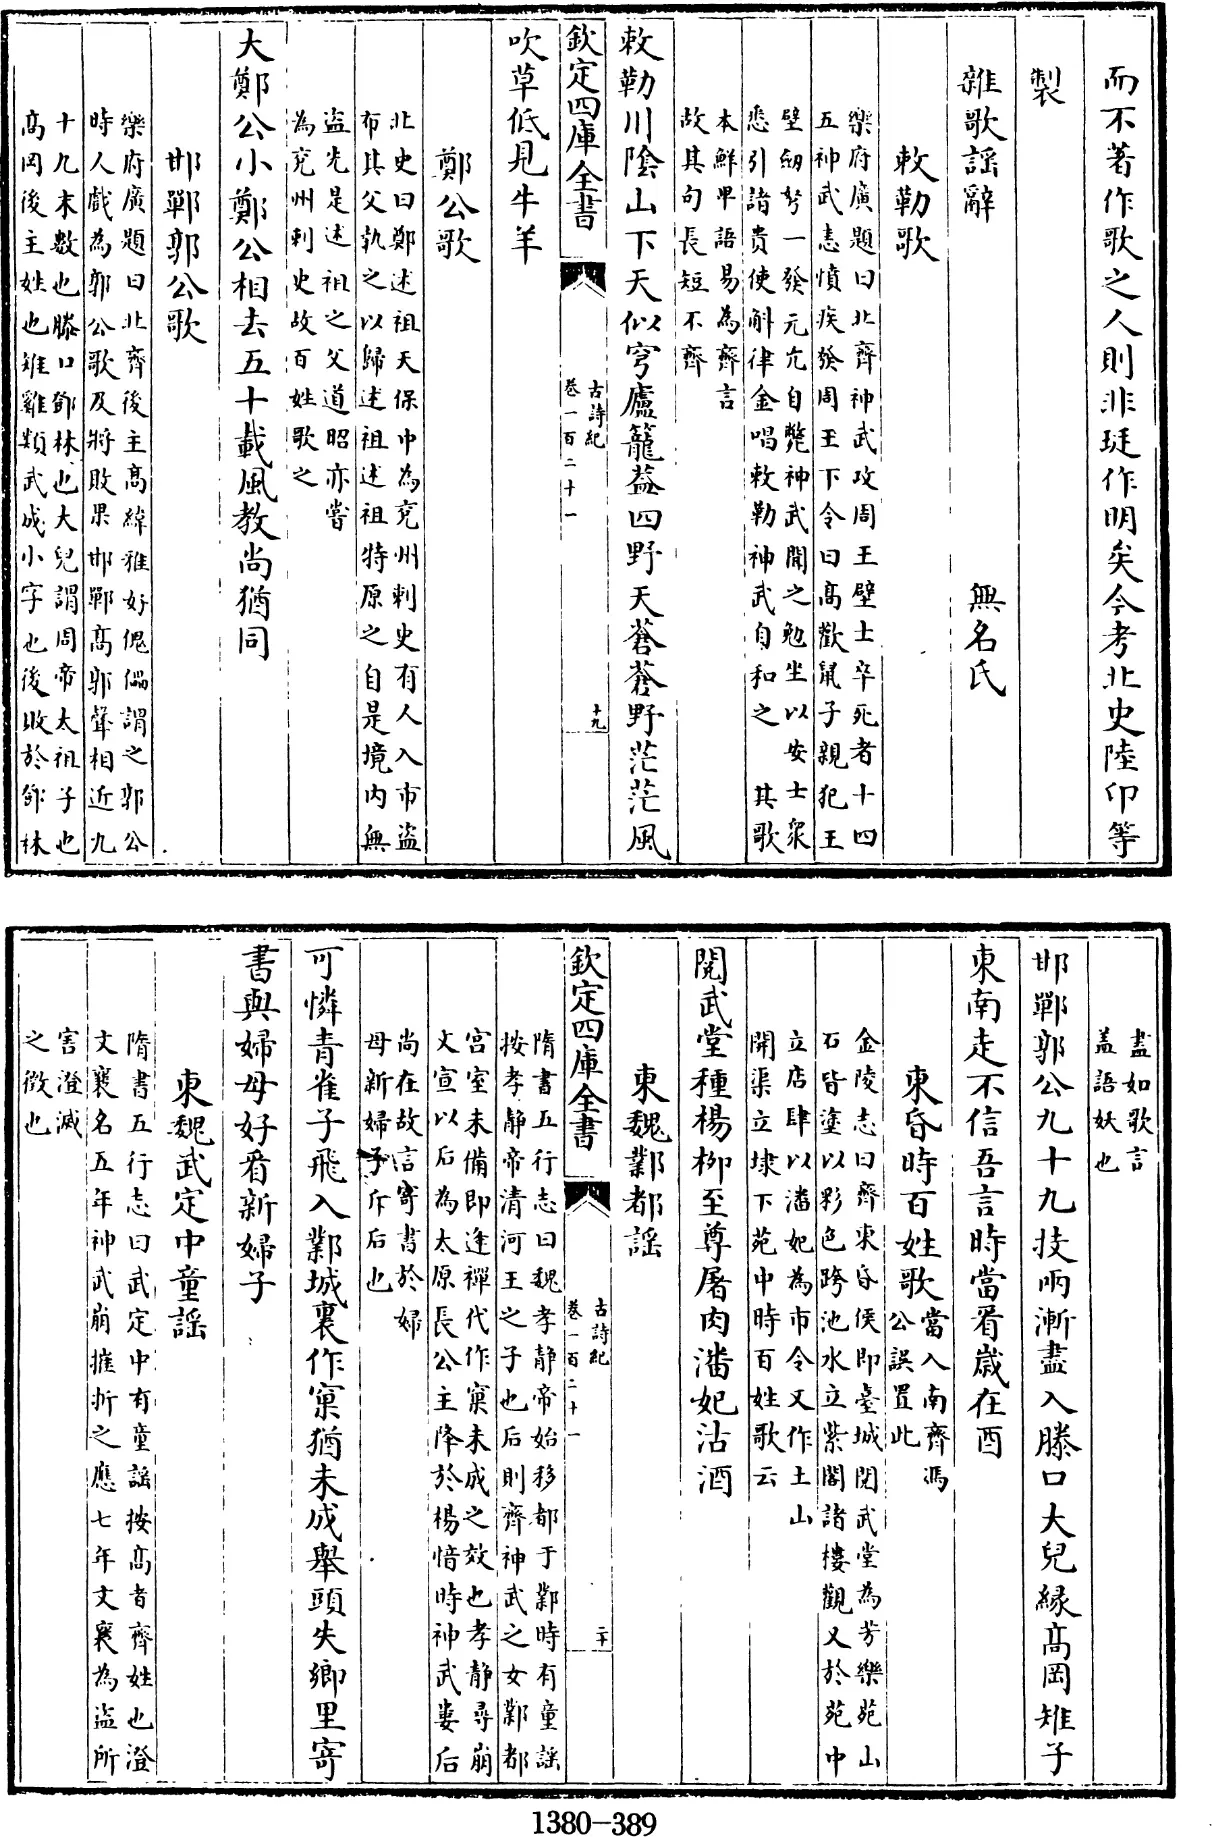 而不著作歌之人則非珽作明矣今考北史陸卬等
製
雜歌謡辭　無名氏
敕勒歌
樂府廣題曰北齊神武攻周王壁士卒死者十四
五神武恚憤疾發周王下令曰髙歡鼠子親犯王
壁劒弩一發元凶自斃神武聞之勉坐以安士衆
悉引諸貴使斛律金唱敕勒神武自和之　其歌
本鮮卑語易為齊言
故其句長短不齊
敕勒川陰山下天似穹廬籠葢四野天蒼蒼野茫茫風
欽定四庫全書
古詩紀
卷一百二十一
十九
吹草低見牛羊
鄭公歌
北史曰鄭述祖天保中為兖州刺史有人入市盜
布其父執之以歸述祖述祖特原之自是境内無
盜先是述祖之父道昭亦嘗
為兖州刺史故百姓歌之
大鄭公小鄭公相去五十載風教尚猶同
邯鄲郭公歌
樂府廣題曰北齊後主髙緯雅好傀儡謂之郭公
時人戲為郭公歌及將敗果邯鄲髙郭聲相近九
十九末數也滕口鄧林也大兒謂周帝太祖子也
髙岡後主姓也雉雞類武成小字也後敗於鄧林
盡如歌言
葢語妖也
邯鄲郭公九十九技兩漸盡入滕口大兒縁髙岡雉子
東南走不信吾言時當㸔嵗在酉
東昏時百姓歌當入南齊馮
公誤置此
金陵志曰齊東昏侯即臺城閲武堂為芳樂苑山
石皆塗以彩色跨池水立紫閣諸樓觀又於苑中
立店肆以潘妃為市令又作土山
開渠立埭下苑中時百姓歌云
閲武堂種楊柳至尊屠肉潘妃沽酒
東魏鄴都謡
欽定四庫全書
古詩紀
卷一百二十一
二十
隋書五行志曰魏孝静帝始移都于鄴時有童謡
按孝静帝清河王之子也后則齊神武之女鄴都
宫室未備即逢禪代作窠未成之效也孝静尋崩
文宣以后為太原長公主降於楊愔時神武婁后
尚在故言寄書於婦
母新婦子斥后也
可憐青雀子飛入鄴城裏作窠猶未成舉頭失鄉里寄
書與婦母好㸔新婦子
東魏武定中童謡
隋書五行志曰武定中有童謡按髙者齊姓也澄
文襄名五年神武崩摧折之應七年文襄為盜所
害澄滅
之徴也
1380-389